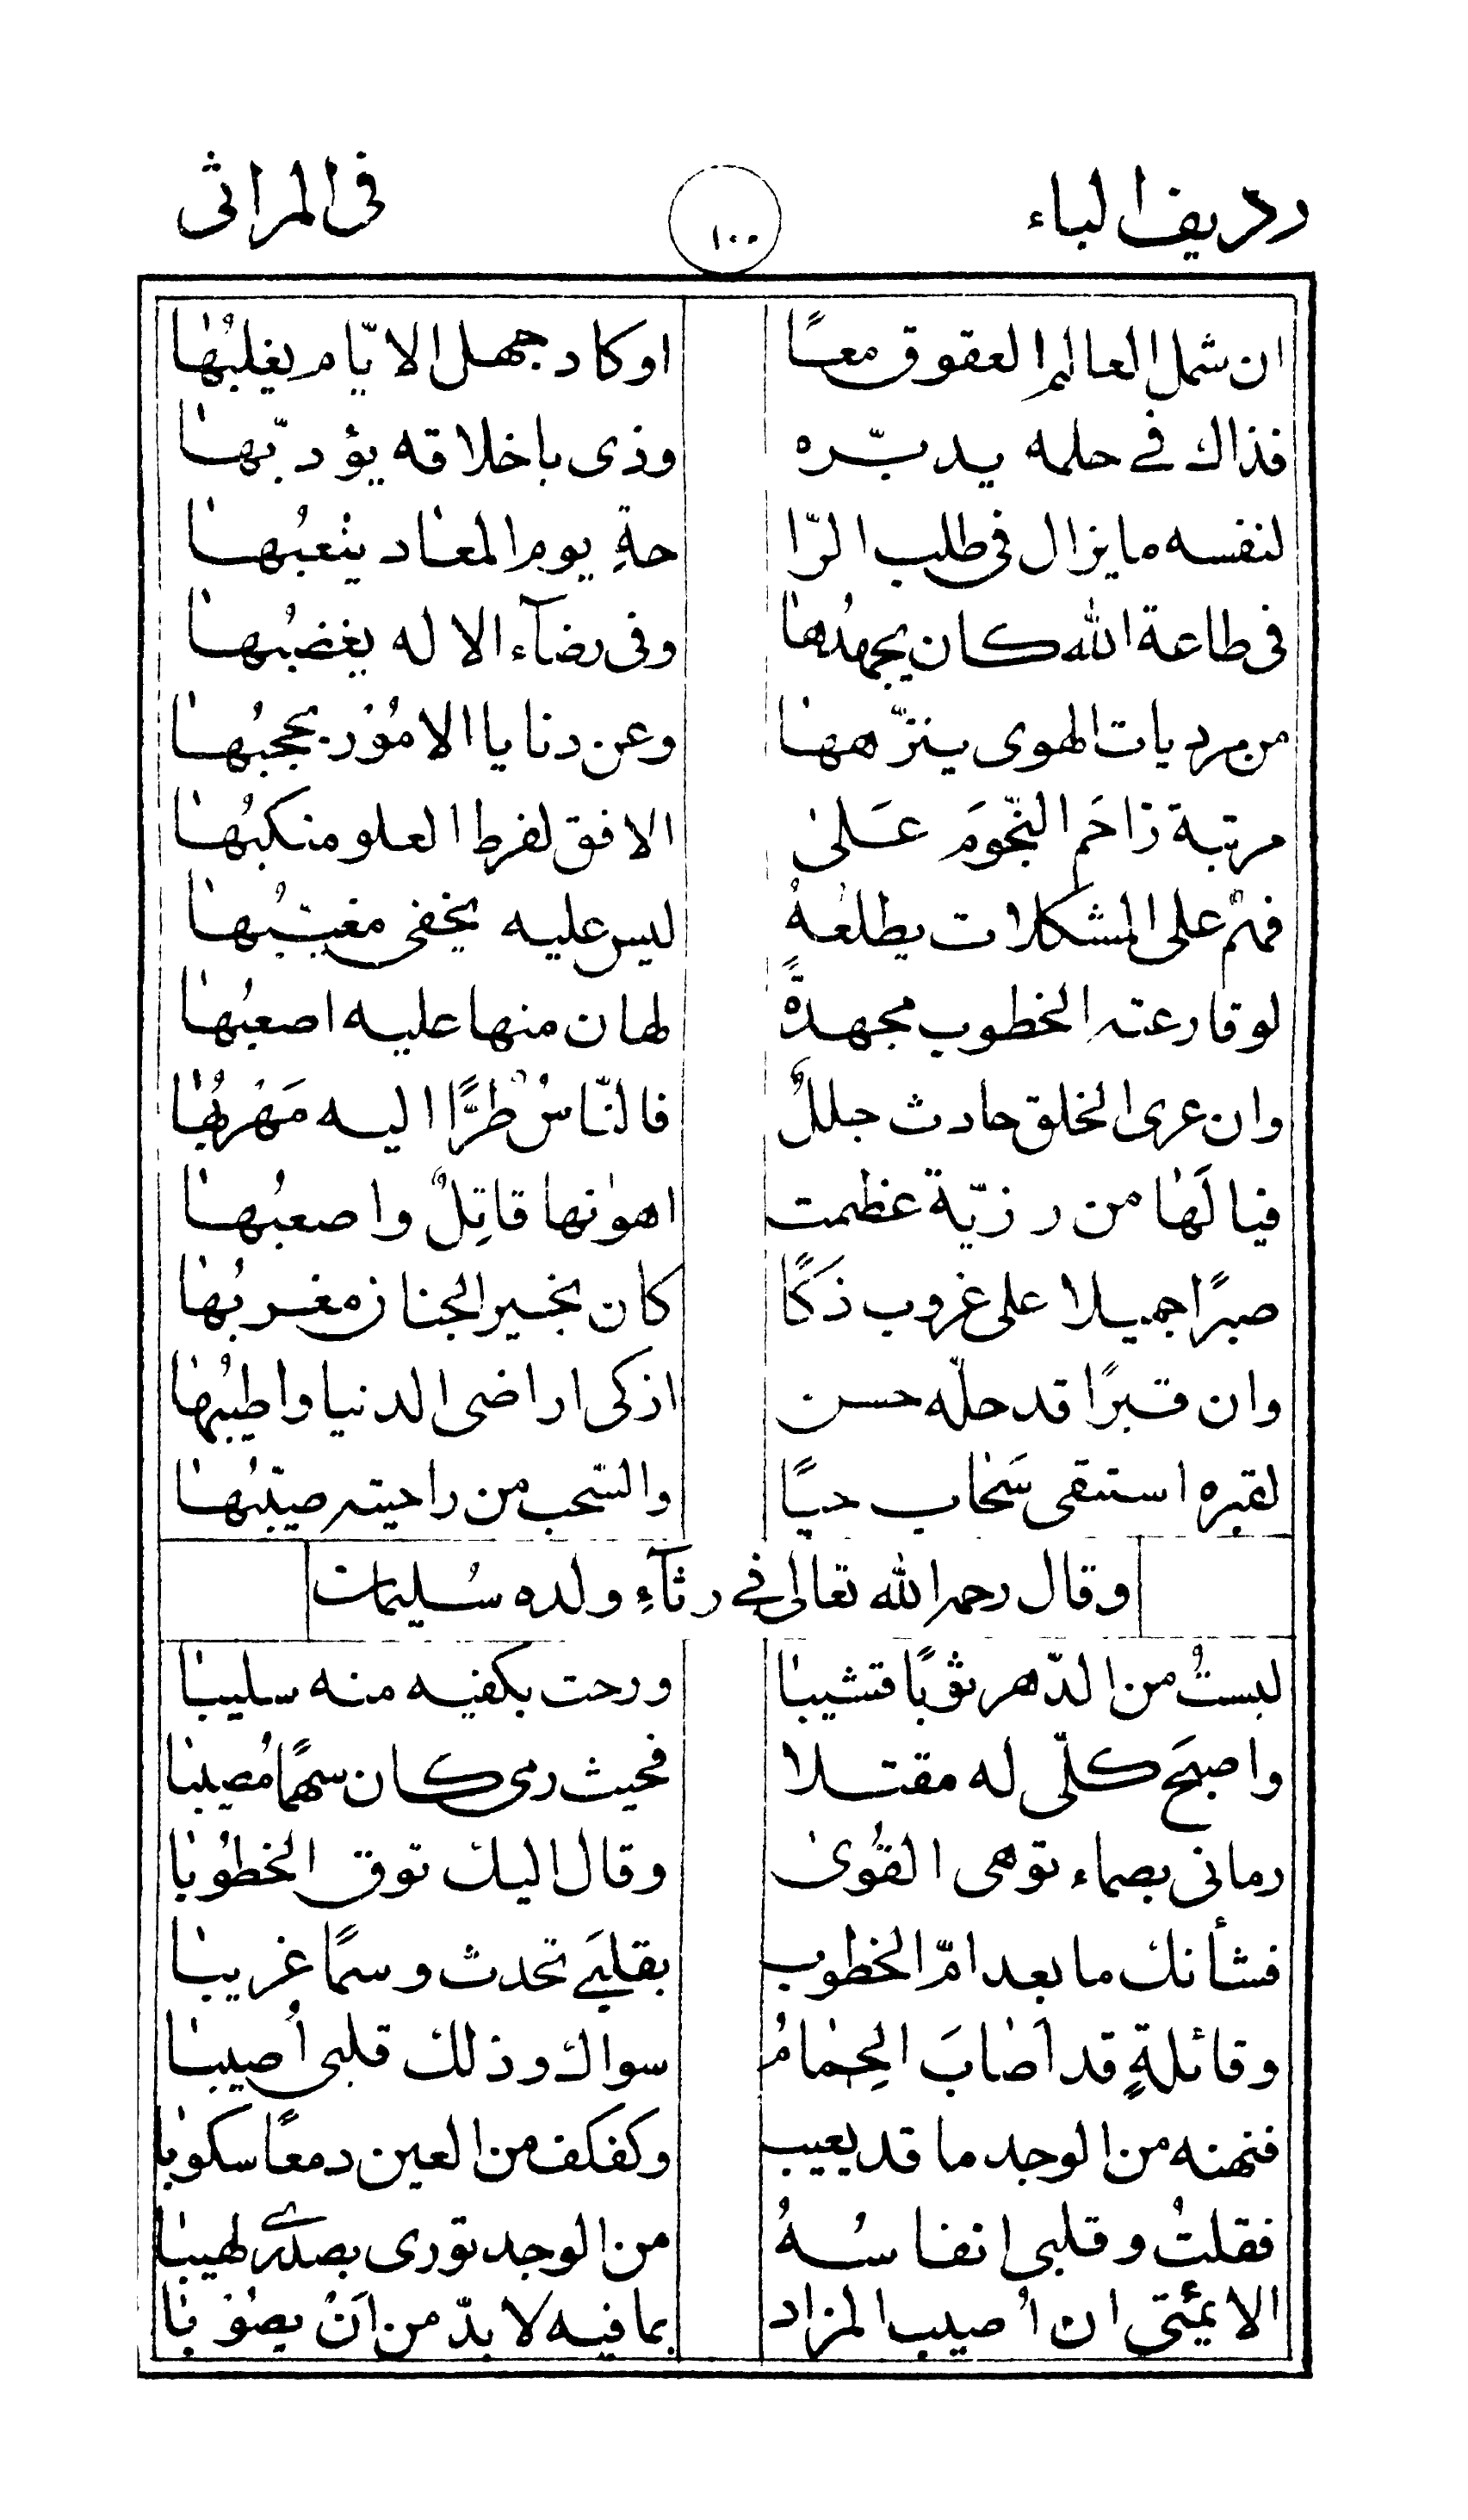 ردريف الباء ١٠٠ فى المراثى
ان شمل العالم العقوق معًا اوكاد جهل الايّام يغلبُها
فذاك فى حلمه يدبّره وذى باخلاقه يؤدّبها
لنفسه مايزال فى طلب الرّا حةِ يوم المعاد يتعبُها
فى طاعة الله كان يجهدُها وفى رضآء الاله يغضبُها
من مرديات الهوى ينزّهها وعن دنايا الامُوْر يحجبُها
مرتبة زاحَم النّجومَ عَلى الافق لفرط العلو منكبُها
فهمٌ على المشكلات يطلعُهُ ليس عليه يخفى مغيّبُها
لوقارعته الخطوب مجهدةً لهان منها عليه اصعبُها
وان عرى الخلق حادث جللٌ فالنّاسُ طُرًّا اليه مَهْربُها
فيالَها من رزيّة عظمت اهونها قاتِلٌ واصعبُها
صبرًا جميلا على غروب ذكًا كان بخير الجنان مغربُها
وان قبرًا قد حلّه حسن ازكى اراضى الدنيا واطيبُها
لقبره استسقى سَحاب حيًا والسّحب من راحيته صيّبُها
وقال رحمه الله تعالى فى رثآءِ ولده سُليمان
لبستُ من الدّهر ثوبًا قشيبا ورحت بكفيه منه سليبا
واصبحَ كلّى له مقتلا فحيث رمى كان سهمًا مُصيبا
رمانى بصماء توهى القُوى وقال اليك توق الخطُوبا
فشأنك مابعد امّ الخطوب بقلبى تحدث وسمًا غريبا
وقائلةٍ قد اَصابَ الحِمامُ سواك وذلك قلبى أصيبا
فنهنه من الوجد ما قد يعيب وكفكف من العين دمعًا سكوبا
فقلتُ وقلبى انفاسُهُ من الوجد تورى بصدرى لهيبا
الايمّتى ان اُصيب المزاد بمافيه لابدّ من اَنْ يصُوْبا